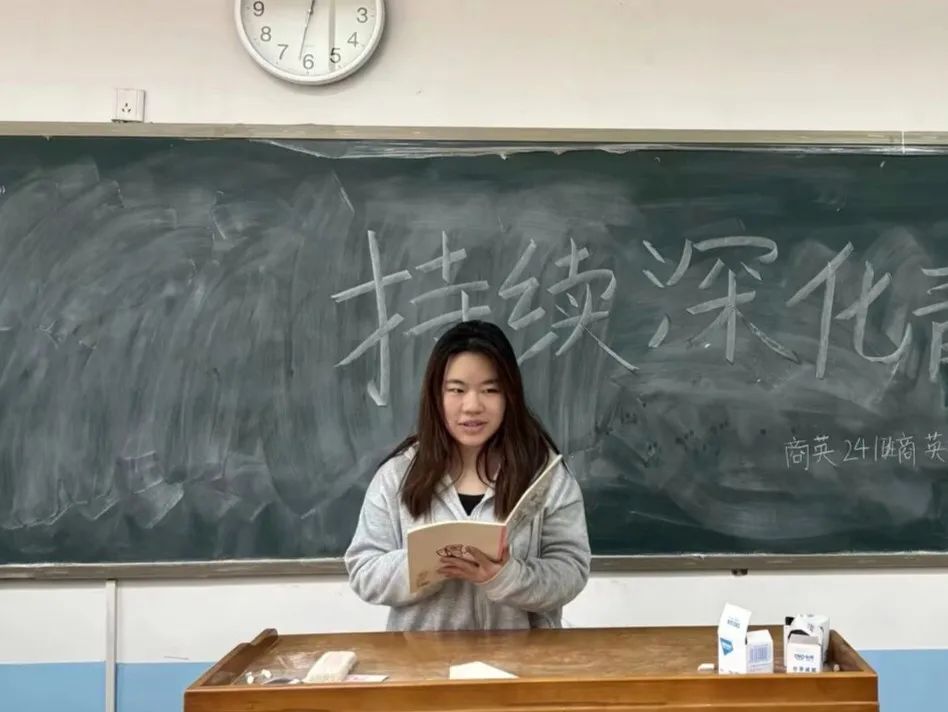 9 3
8 4
7 6 5
持续深化青
商英241班商英